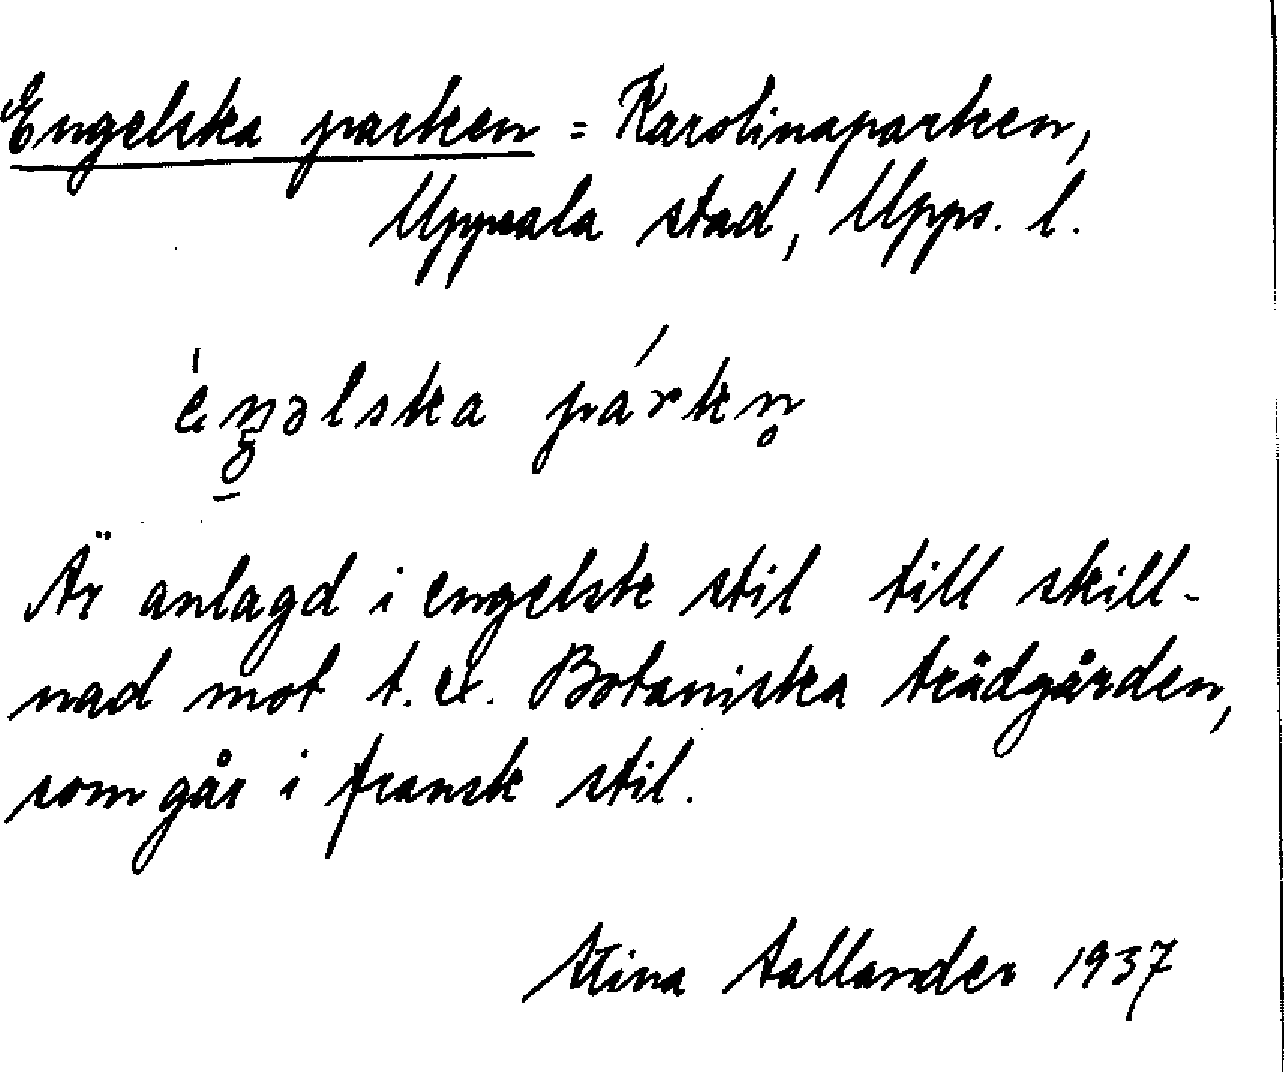 Engelska parken = Karolinaparken,
Uppsala stad, Upps. l.
éŋəlska párkn̥
Är anlagd i engelsk stil till skill-
nad mot t. ex. Botaniska trädgården,
som går i fransk stil.
Stina Tallander 1937